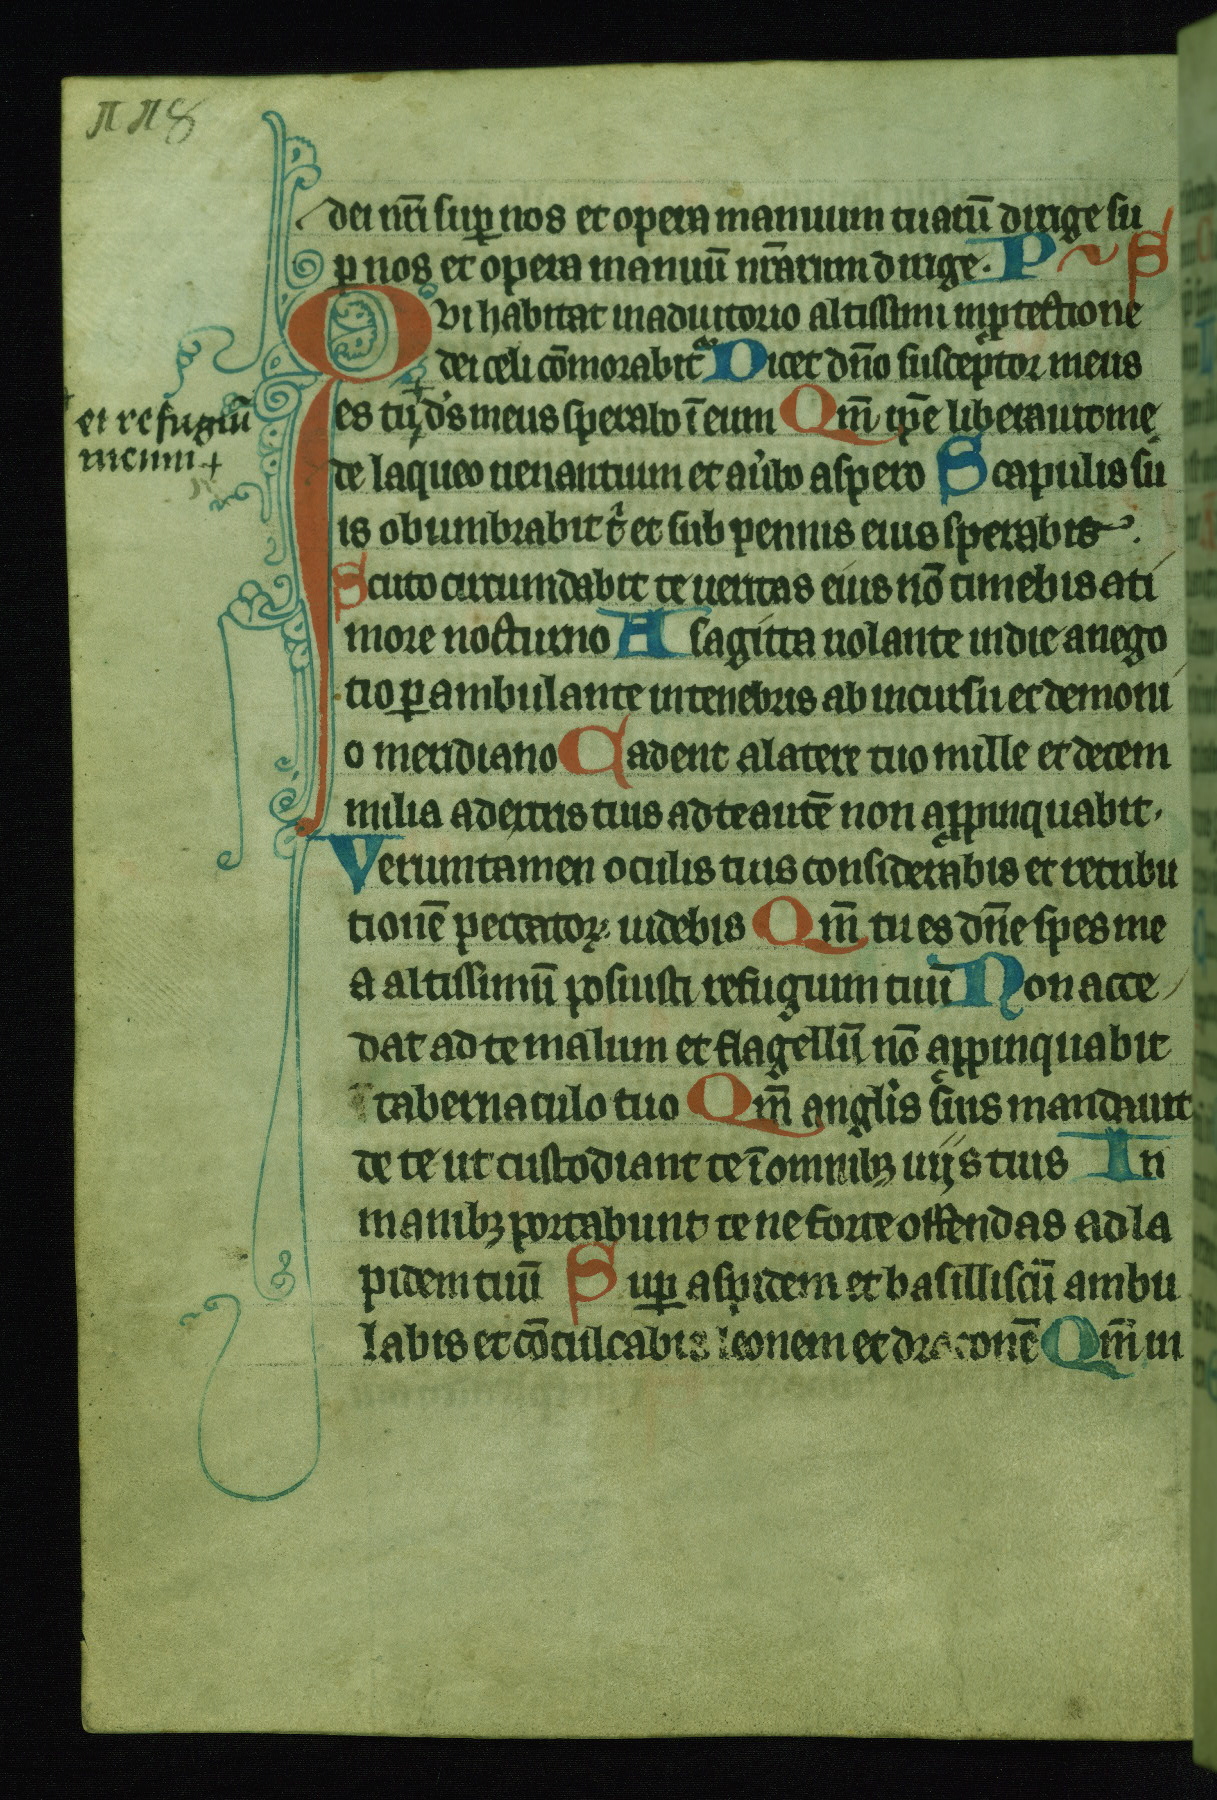 118
dei nr̄i sup̱ nos et opera manuum tuarū dirige su
p̱ nos et opera manuū nr̄arum dirige. P S
Qvi habitat in adiutorio altissimi in ꝓtectione
dei celi cōmorabit᷑ Dicet dn̄o susceptor meus
es tu + ds̄ meus sperabo ī eum Qm̄ ip̄e liberauit me
et refugiū
meum +
de laqueo uenantium et aűbo aspero Scapulis su
is obumbrabit t̉ et sub pennis eius sperabis.
Scuto circumdabit te ueritas eius nō timebis a ti
more nocturno A sagitta uolante in die a nego
tio ꝑambulante in tenebris ab incursu et demoni
o meridiano Cadent a latere tuo mille et decem
milia a dextris tuis ad te autē non appinquabit.
Veruntamen oculis tuis considerabis et retribu
tionē peccatoꝝ uidebis Qm̄ tu es dn̄e spes me
a altissimū posuisti refugium tuū Non acce
dat ad te malum et flagellū nō appinquabit
tabernaculo tuo Qm̄ anglis suis mandauit
de te ut custodiant te ī omnibꝫ uijs tuis In
manibꝫ portabunt te ne forte offendas ad la
pidem tuū Suꝑ aspidem et basilliscū ambu
labis et cōculcabis leonem et draconē Qm̄ in